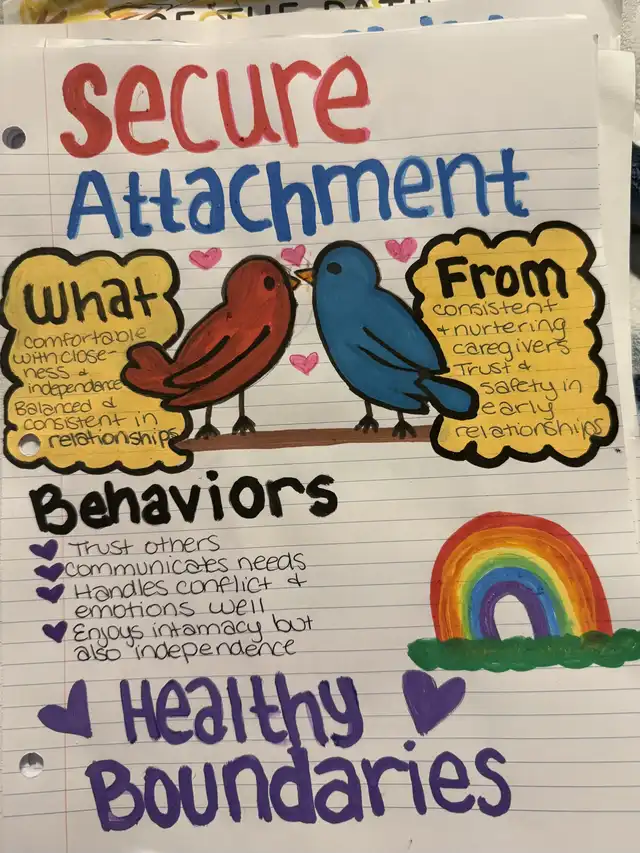 OF THE PATH
Secure
Attachment
What
comfortable
with close-
ness &
independance
Balanced &
consistent in
relationships
From
consistent
+ nurtering
caregivers
Trust &
safety in
early
relationships
Behaviors
Trust others
Communicates needs
Handles conflict &
emotions well
Enjoys intamacy but
also independence
Healthy
Boundaries